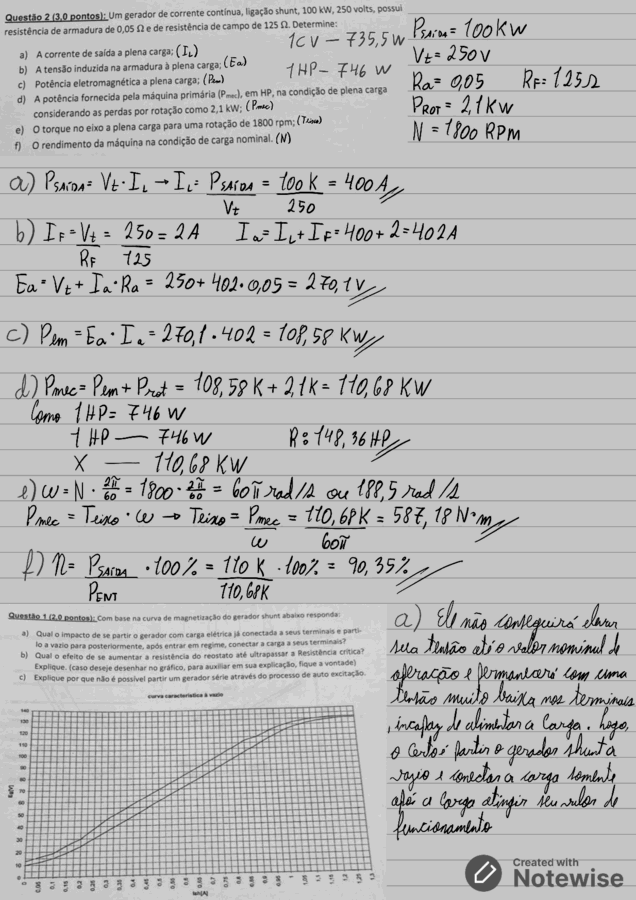 Questão 2 (3,0 pontos): Um gerador de corrente contínua, ligação shunt, 100 kW, 250 volts, possui
resistência de armadura de 0,05 Ω e de resistência de campo de 125 Ω. Determine:
a) A corrente de saída a plena carga; (IL)
b) A tensão induzida na armadura à plena carga; (Ea)
c) Potência eletromagnética a plena carga; (Pem)
d) A potência fornecida pela máquina primária (Pmec), em HP, na condição de plena carga
considerando as perdas por rotação como 2,1 kW; (Pmec)
e) O torque no eixo a plena carga para uma rotação de 1800 rpm; (Teixo)
f) O rendimento da máquina na condição de carga nominal. (N)
1CV – 735,5 W
1HP – 746 W
PSAÍDA = 100KW
Vt = 250V
Ra = 0,05 RF = 125Ω
PROT = 2,1KW
N = 1800 RPM
a) PSAÍDA = Vt · IL → IL = PSAÍDA/Vt = 100K/250 = 400A
b) IF = Vt/RF = 250/125 = 2A Ia = IL + IF = 400 + 2 = 402A
Ea = Vt + Ia · Ra = 250 + 402 · 0,05 = 270,1V
c) Pem = Ea · Ia = 270,1 · 402 = 108,58 KW
d) Pmec = Pem + Prot = 108,58K + 2,1K = 110,68 KW
Como 1HP = 746 W
1 HP — 746 W R: 148,36HP
X — 110,68 KW
e) ω = N · 2π/60 = 1800 · 2π/60 = 60π rad/s ou 188,5 rad/s
Pmec = Teixo · ω → Teixo = Pmec/ω = 110,68K/60π = 587,18 N·m
f) η = PSAÍDA/PENT · 100% = 110 K/110,68K · 100% = 90,35%
Questão 1 (2,0 pontos): Com base na curva de magnetização do gerador shunt abaixo responda:
a) Qual o impacto de se partir o gerador com carga elétrica já conectada a seus terminais e parti-
lo a vazio para posteriormente, após entrar em regime, conectar a carga a seus terminais?
b) Qual o efeito de se aumentar a resistência do reostato até ultrapassar a Resistência crítica?
Explique. (caso deseje desenhar no gráfico, para auxiliar em sua explicação, fique a vontade)
c) Explique por que não é possível partir um gerador série através do processo de auto excitação.
curva característica à vazio
140
130
120
110
100
90
80
70
60
50
40
30
20
10
0
Eg(V)
0 0,05 0,1 0,15 0,2 0,25 0,3 0,35 0,4 0,45 0,5 0,55 0,6 0,65 0,7 0,75 0,8 0,85 0,9 0,95 1 1,05 1,1 1,15 1,2 1,25 1,3
Ish[A]
a) Ele não conseguirá elevar
sua tensão até o valor nominal de
operação e permanecerá com uma
tensão muito baixa nos terminais
, incapaz de alimentar a Carga. Logo,
o certo é partir o gerador shunt a
vazio e conectar a carga somente
após a Carga atingir seu valor de
funcionamento
Created with
Notewise